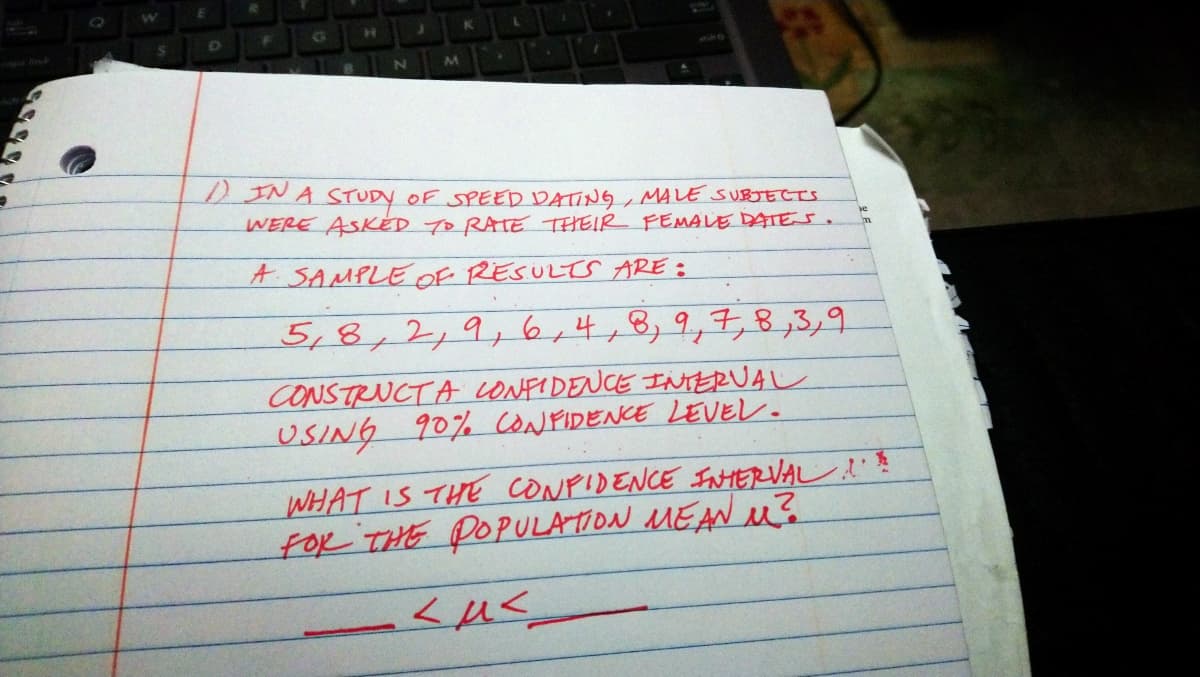 Q W E R T G H J K L
S D F N M
1) IN A STUDY OF SPEED DATING, MALE SUBJECTS
WERE ASKED TO RATE THEIR FEMALE DATES.
A SAMPLE OF RESULTS ARE:
5, 8, 2, 9, 6, 4, 8, 9, 7, 8, 3, 9
CONSTRUCT A CONFIDENCE INTERVAL
USING 90% CONFIDENCE LEVEL.
WHAT IS THE CONFIDENCE INTERVAL
FOR THE POPULATION MEAN μ?
___ < μ < ___